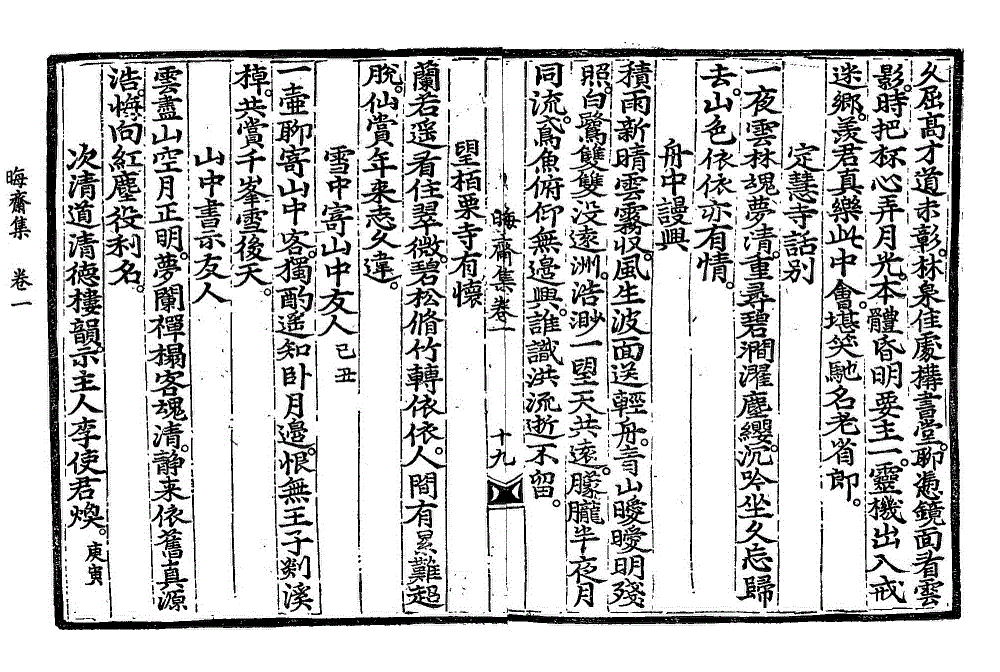 久屈高才道未彰。林泉佳處構書堂。聊憑鏡面看雲
影。時把杯心弄月光。本體昏明要主一。靈機出入戒
迷鄕。羨君眞樂此中會。堪笑馳名老省郞。
定慧寺話別
一夜雲林魂夢淸。重尋碧澗濯塵纓。沉吟坐久忘歸
去。山色依依亦有情。
舟中謾興
積雨新晴雲霧収。風生波面送輕舟。靑山曖曖明殘
照。白鷺雙雙没遠洲。浩渺一望天共遠。朦朧半夜月
同流。鳶魚俯仰無邊興。誰識洪流逝不留。
晦齋集卷一
十九
望栢栗寺有懷
蘭若遥看住翠微。碧松脩竹轉依依。人間有累難超
脫。仙賞年来志久違。
雪中寄山中友人 己丑
一壷聊寄山中客。獨酌遥知卧月邊。恨無王子剡溪
棹。共賞千峯雪後天。
山中書示友人
雲盡山空月正明。夢闌禪榻客魂淸。静来依舊眞源
浩。悔向紅塵役利名。
次淸道淸德樓韻。示主人李使君煥。庚寅
晦齋集 卷一